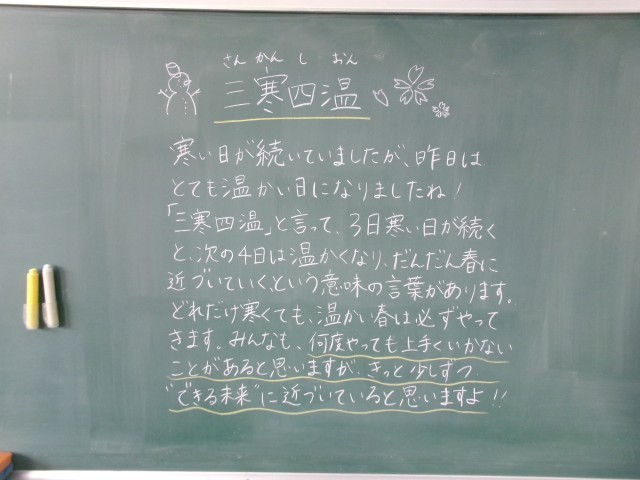 さんかんしおん
三寒四温
寒い日が続いていましたが、昨日は
とても温かい日になりましたね！
「三寒四温」と言って、3日寒い日が続く
と、次の4日は温かくなり、だんだん春に
近づいていく、という意味の言葉があります。
どれだけ寒くても、温かい春は必ずやって
きます。みんなも、何度やっても上手くいかない
ことがあると思いますが、きっと少しずつ
"できる未来"に近づいていると思いますよ!!